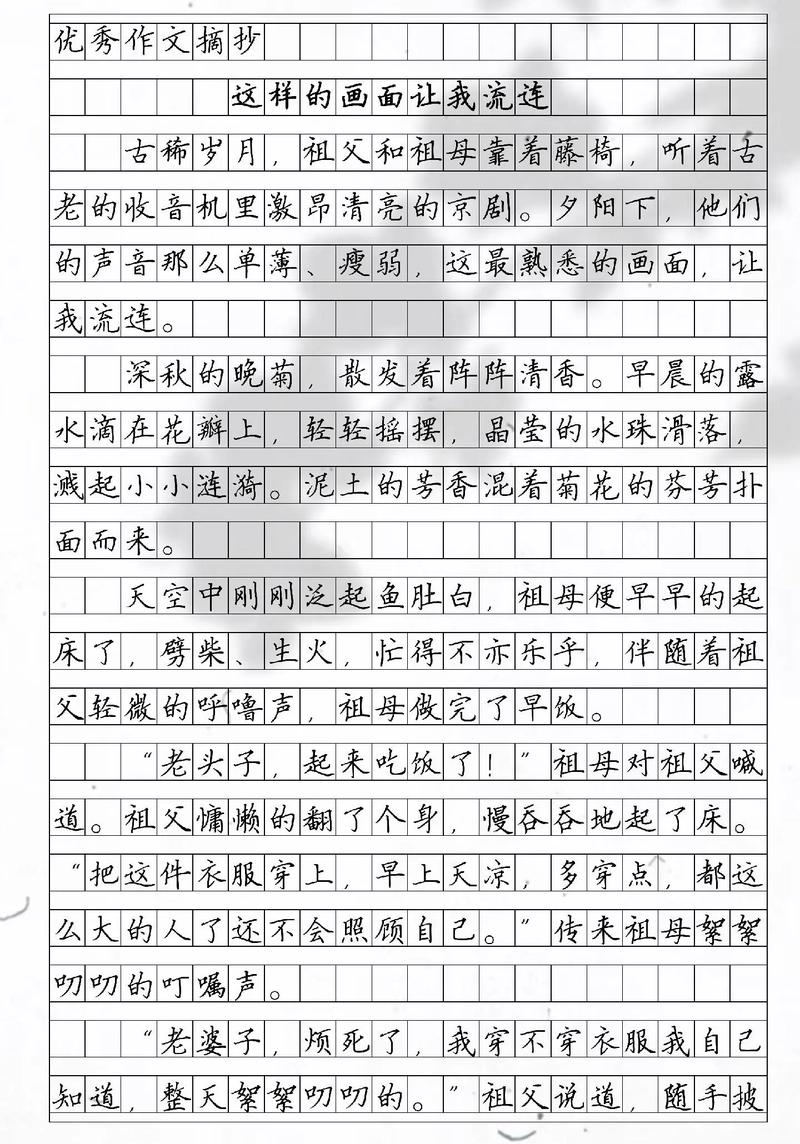 优秀作文摘抄
这样的画面让我流连
古稀岁月，祖父和祖母靠着藤椅，听着古
老的收音机里激昂清亮的京剧。夕阳下，他们
的声音那么单薄、瘦弱，这最熟悉的画面，让
我流连。
深秋的晚菊，散发着阵阵清香。早晨的露
水滴在花瓣上，轻轻摇摆，晶莹的水珠滑落，
溅起小小涟漪。泥土的芳香混着菊花的芬芳扑
面而来。
天空中刚刚泛起鱼肚白，祖母便早早的起
床了，劈柴、生火，忙得不亦乐乎，伴随着祖
父轻微的呼噜声，祖母做完了早饭。
“老头子，起来吃饭了！”祖母对祖父喊
道。祖父慵懒的翻了个身，慢吞吞地起了床。
“把这件衣服穿上，早上天凉，多穿点，都这
么大的人了还不会照顾自己。”传来祖母絮絮
叨叨的叮嘱声。
“老婆子，烦死了，我穿不穿衣服我自己
知道，整天絮絮叨叨的。”祖父说道，随手披